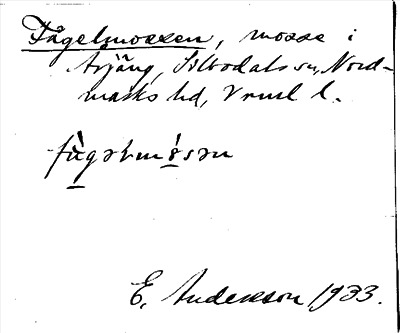 Fågelmossen, mosse i
Årjäng, Silbodals sn, Nord-
marks hd, Vrml l.
fùgəlmósən
E. Anderson 1933.